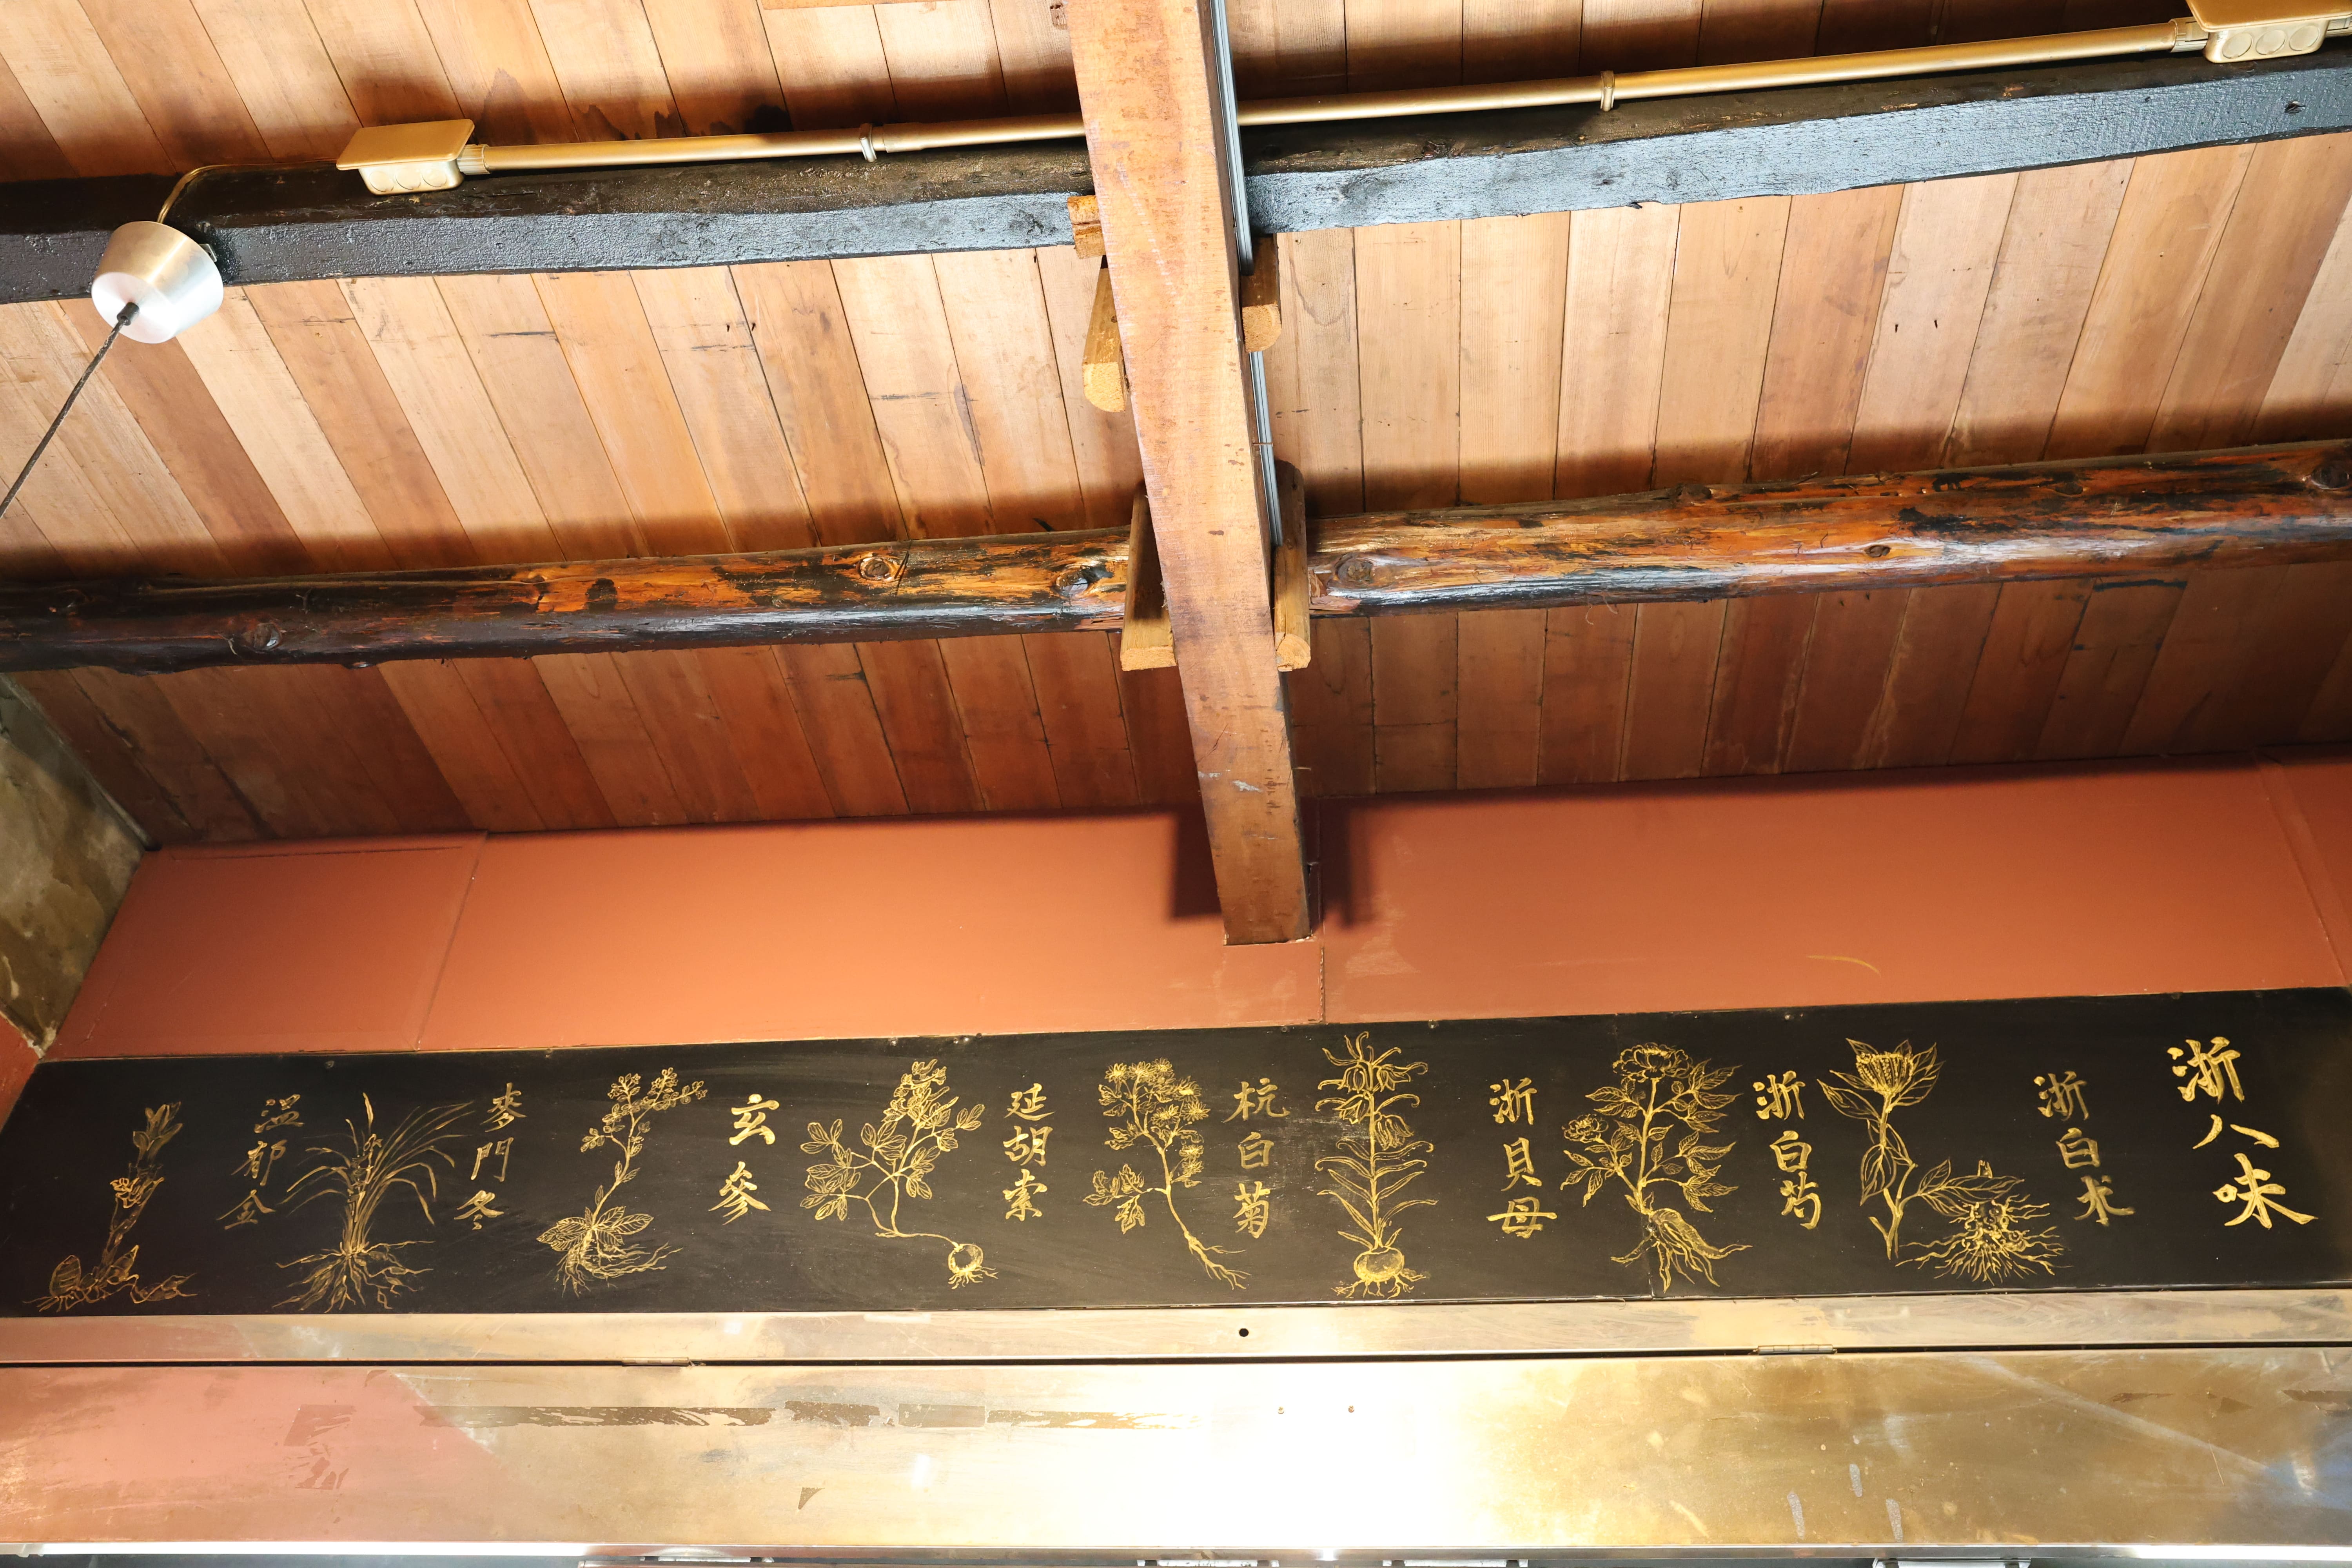 浙八味
浙白术
浙白芍
浙貝母
杭白菊
延胡索
玄參
麥門冬
温郁金